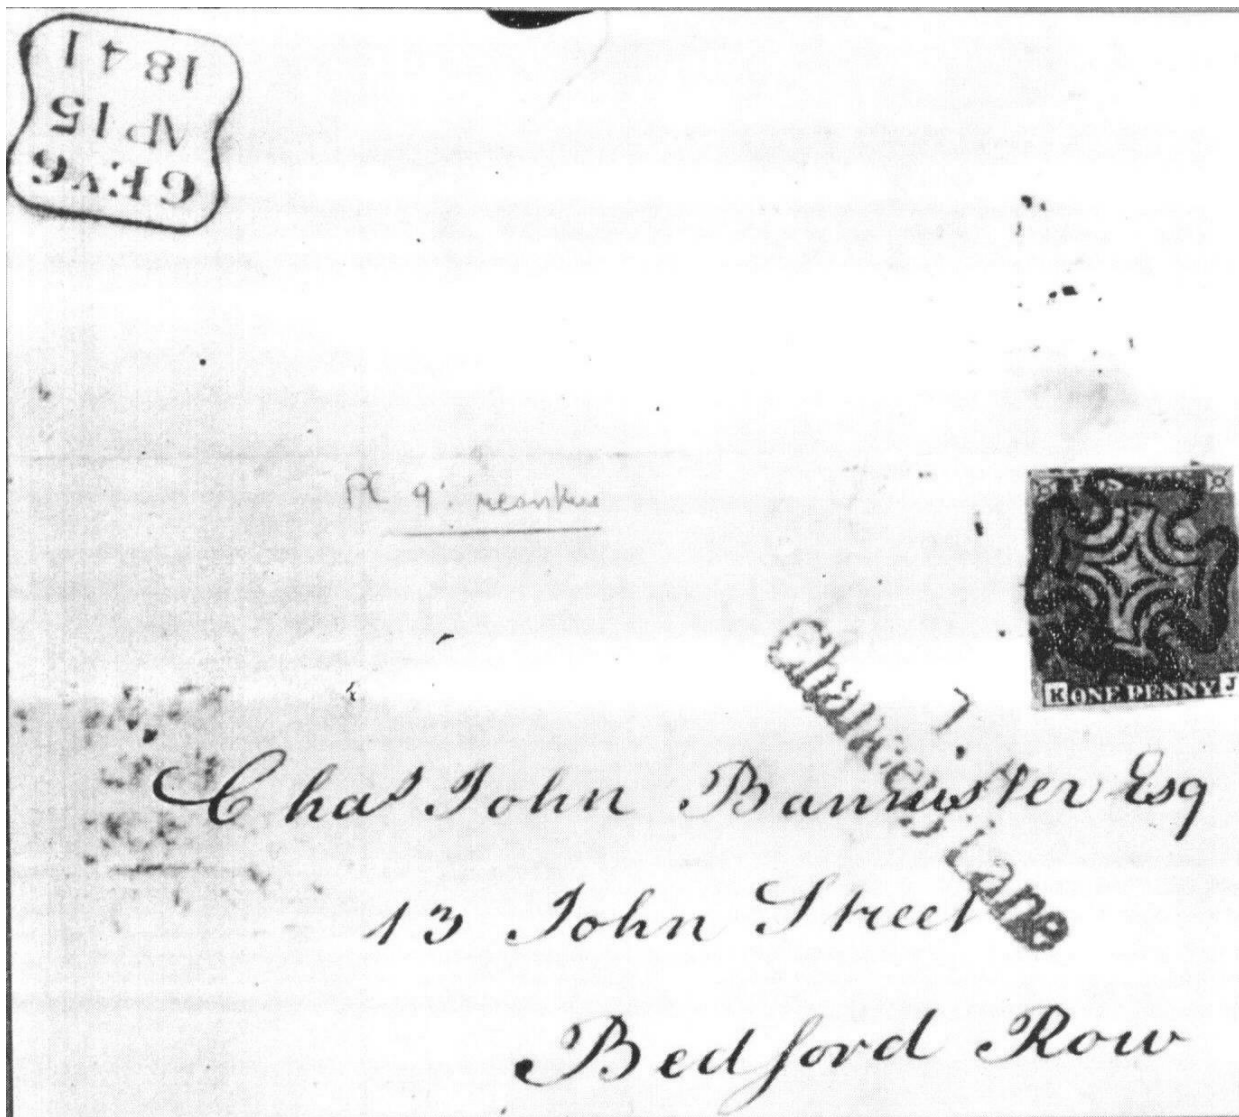 6Ev6
AP15
1841
Pl 9
K ONE PENNY J
Chancery Lane
Chas John Bannister Esq
13 John Street
Bedford Row